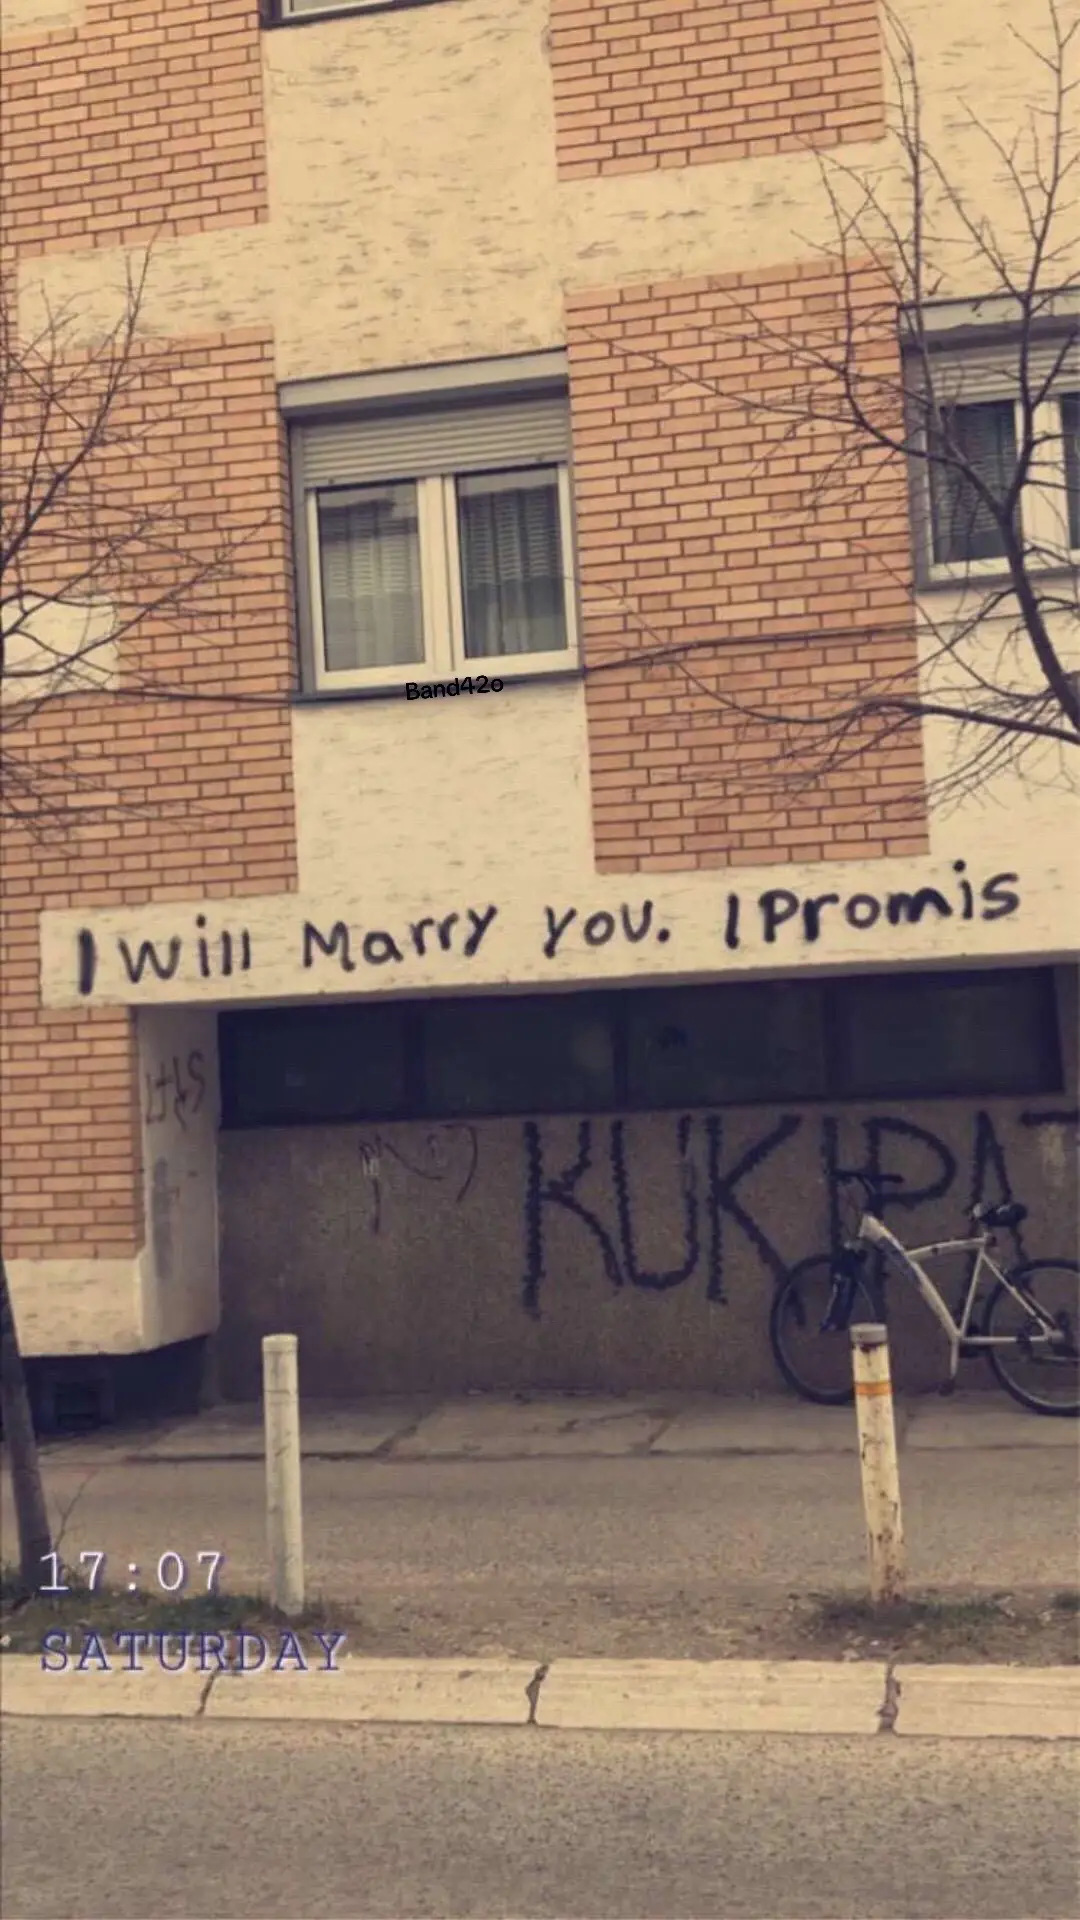 Band42o
I will Marry you. I Promis
KUKI PA
17:07
SATURDAY